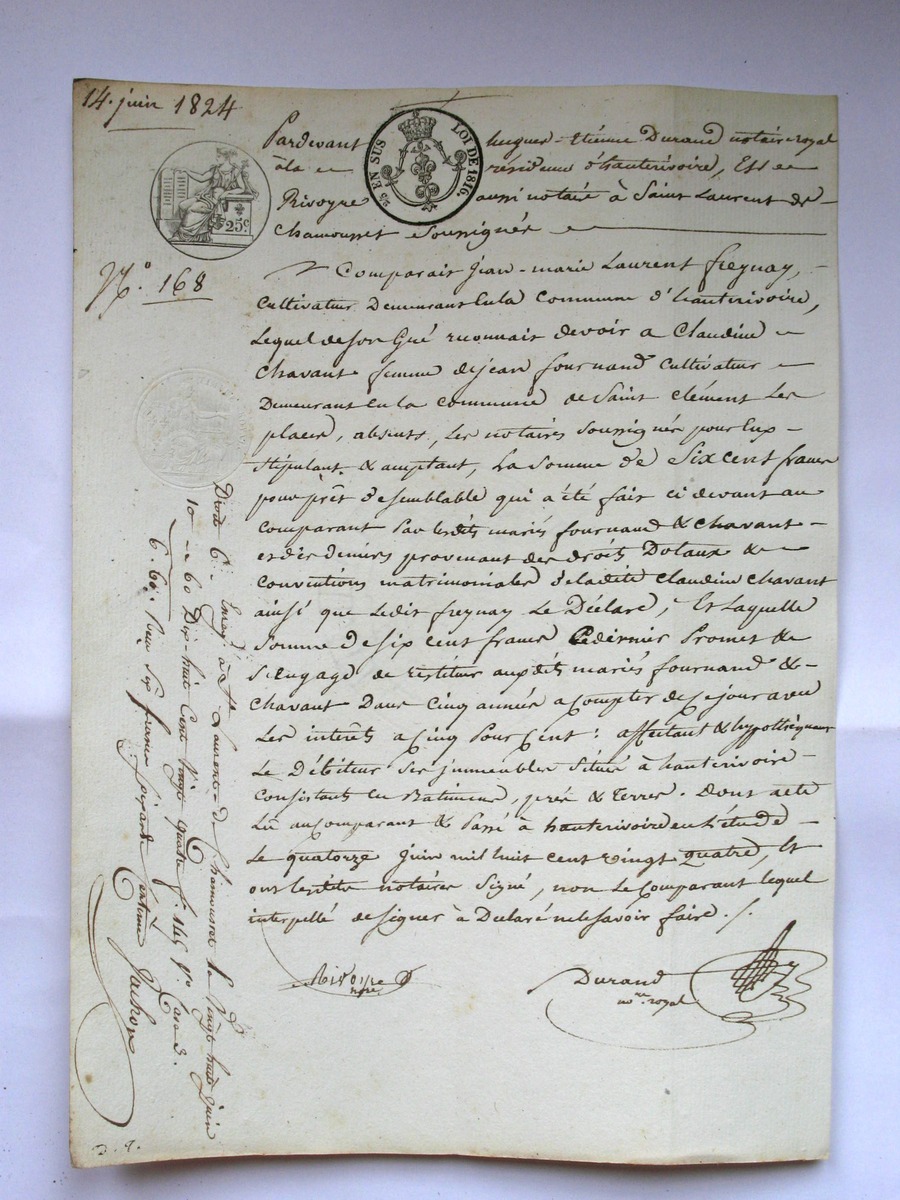 14. juin 1824
Pardevant hugues-étienne Durand notaire royal
à la résidence d'hauterivoire, Et
Rivoyre aussi notaire à Saint Laurent de
Chamousset soussignés
25c
5c EN SUS LOI DE 1816.
N.o 168
Comparait Jean-marie Laurent freynay,
Cultivateur Demeurant En la Commune d'hauterivoire,
Lequel de son Gré reconnait devoir a Claudine
Chavant femme de jean fournand Cultivateur
Demeurant En la commune de Saint Clément Les
places, absents, Les notaires soussignés pour Eux
stipulant & acceptant, La Somme de Six cent francs
pour prêt de semblable qui a été fait ci devant au
comparant Par lesdits mariés fournand & Chavant
et des deniers provenant des droits Dotaux &
Conventions matrimoniales de ladite Claudine Chavant
ainsi que Ledit freynay Le Déclare, Et Laquelle
Somme de six cent francs Ce dernier Promet &
S'Engage de restituer auxdits mariés fournand &
Chavant Dans Cinq années a Compter de Ce jour avec
Les intérêts a Cinq Pour Cent : affectant & hypothéquant
Le Débiteur Ses jmmeubles Situés à hauterivoire
Consistants En Batiments, prés & Terres. Dont acte
Lu au Comparant & Passé à hauterivoire En L'étude
Le quatorze juin mil huit cent vingt quatre, Et
ont lesdits notaires Signé, non Le Comparant lequel
interpellé de signer à Déclaré ne le savoir faire ./.
Rivoyre nore
Durand
no.re royal
Droits 6. Enregé à St Laurent de Chamousset le Vingt huit juin
10 60 Dix-huit Cent Vingt quatre f.o 145 V.o Case 3.
6. 60. Reçu Six francs soixante Centimes